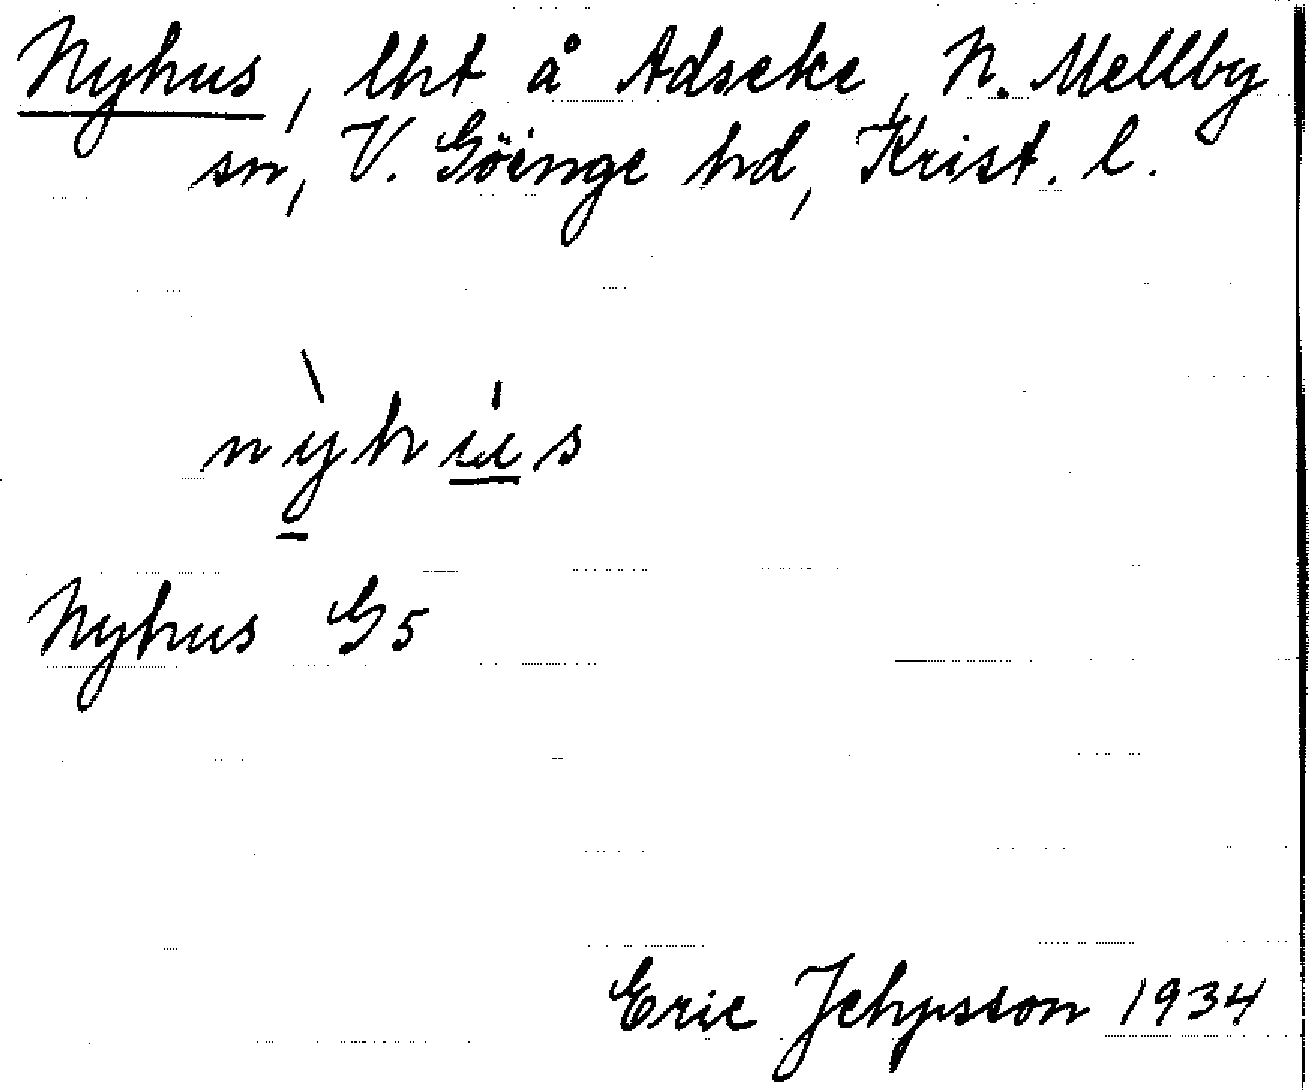 Nyhus, lht å Adseke, N. Mellby
sn, V. Göinge hd, Krist. l.
nỳhu̍s
Nyhus G5
Eric Jehpsson 1934